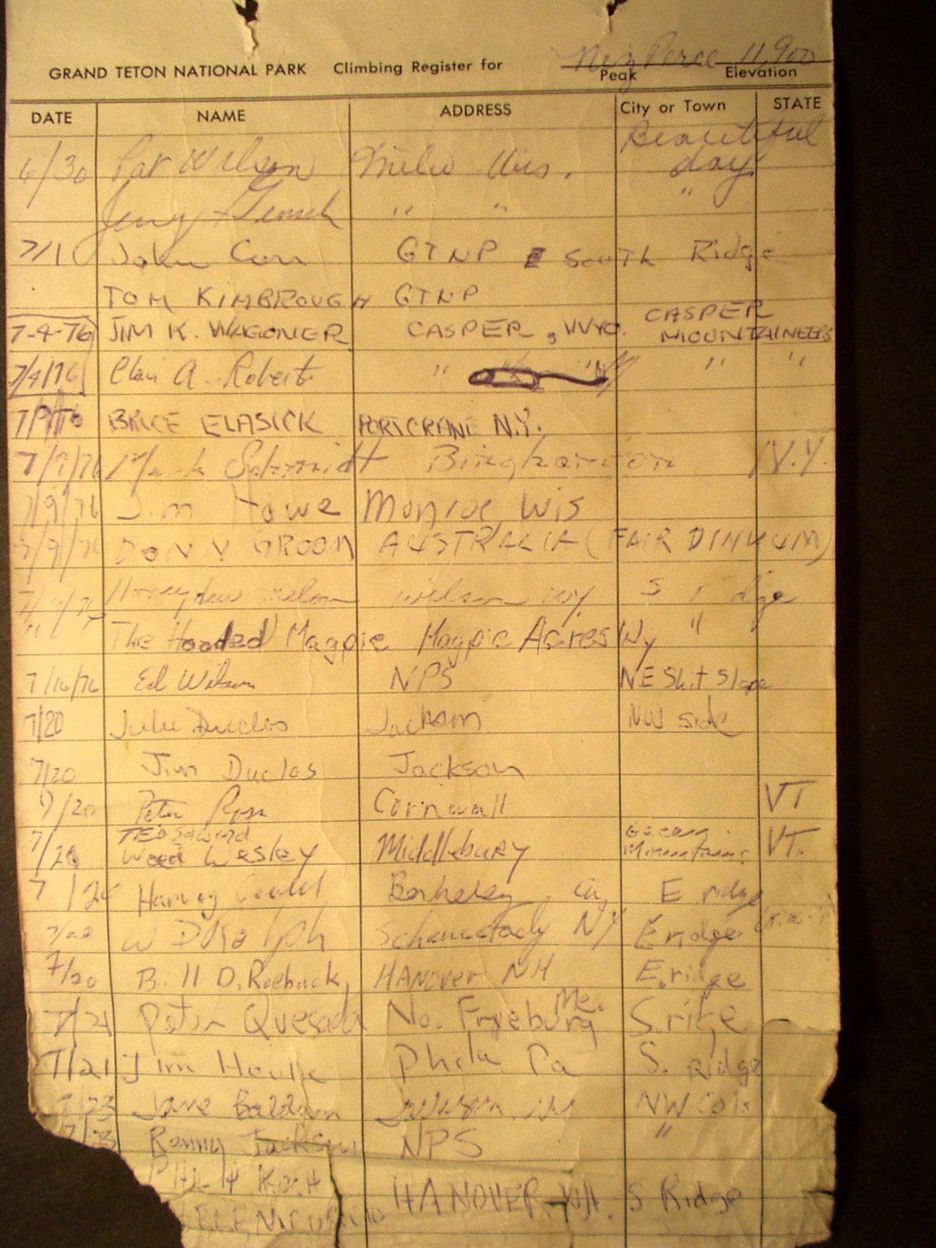 Nez Perce 11,900
GRAND TETON NATIONAL PARK Climbing Register for Peak Elevation
DATE NAME ADDRESS City or Town STATE
6/30 Pat Wilson Milw Wis. Beautiful day
Jerry " " "
7/1 John Carr GTNP South Ridge
TOM KIMBROUGH GTNP
7-4-76 JIM K. WAGONER CASPER, WYO. CASPER MOUNTAINEERS
7/4/76 A. Robert " " " "
7/9/76 BRUCE ELASICK PORTCRANE N.Y.
7/9/76 Mark Schmidt Binghamton N.Y.
7/9/76 Jim Howe Monroe Wis
7/9/76 DONNY GROOM AUSTRALIA (FAIR DINKUM)
Honeydew Melon Wilson Wy S Ridge
" The Hooded Magpie Magpie Acres Wy "
7/16/76 Ed Wilson NPS NE Shit Slope
7/20 Julie Duclos Jackson NW side
7/20 Jim Duclos Jackson
7/20 Peter Cornwall VT
7/20 TED Edward Weed Wesley Middlebury Green Mountains VT.
7/20 Harvey Berkeley Ca, E ridge
7/20 W D Ralph Schenectady NY E ridge
7/20 Bill D. Roebuck HANOVER NH E. ridge
7/21 Peter Quesada No. Fryeburg Me. S. rige
7/21 Jim Phila Pa S. Ridge
7/23 Jane Baldwin Jackson NW Coul
7/23 Ronny Jackson NPS "
PHIL H KOCH HANOVER, NH. S Ridge